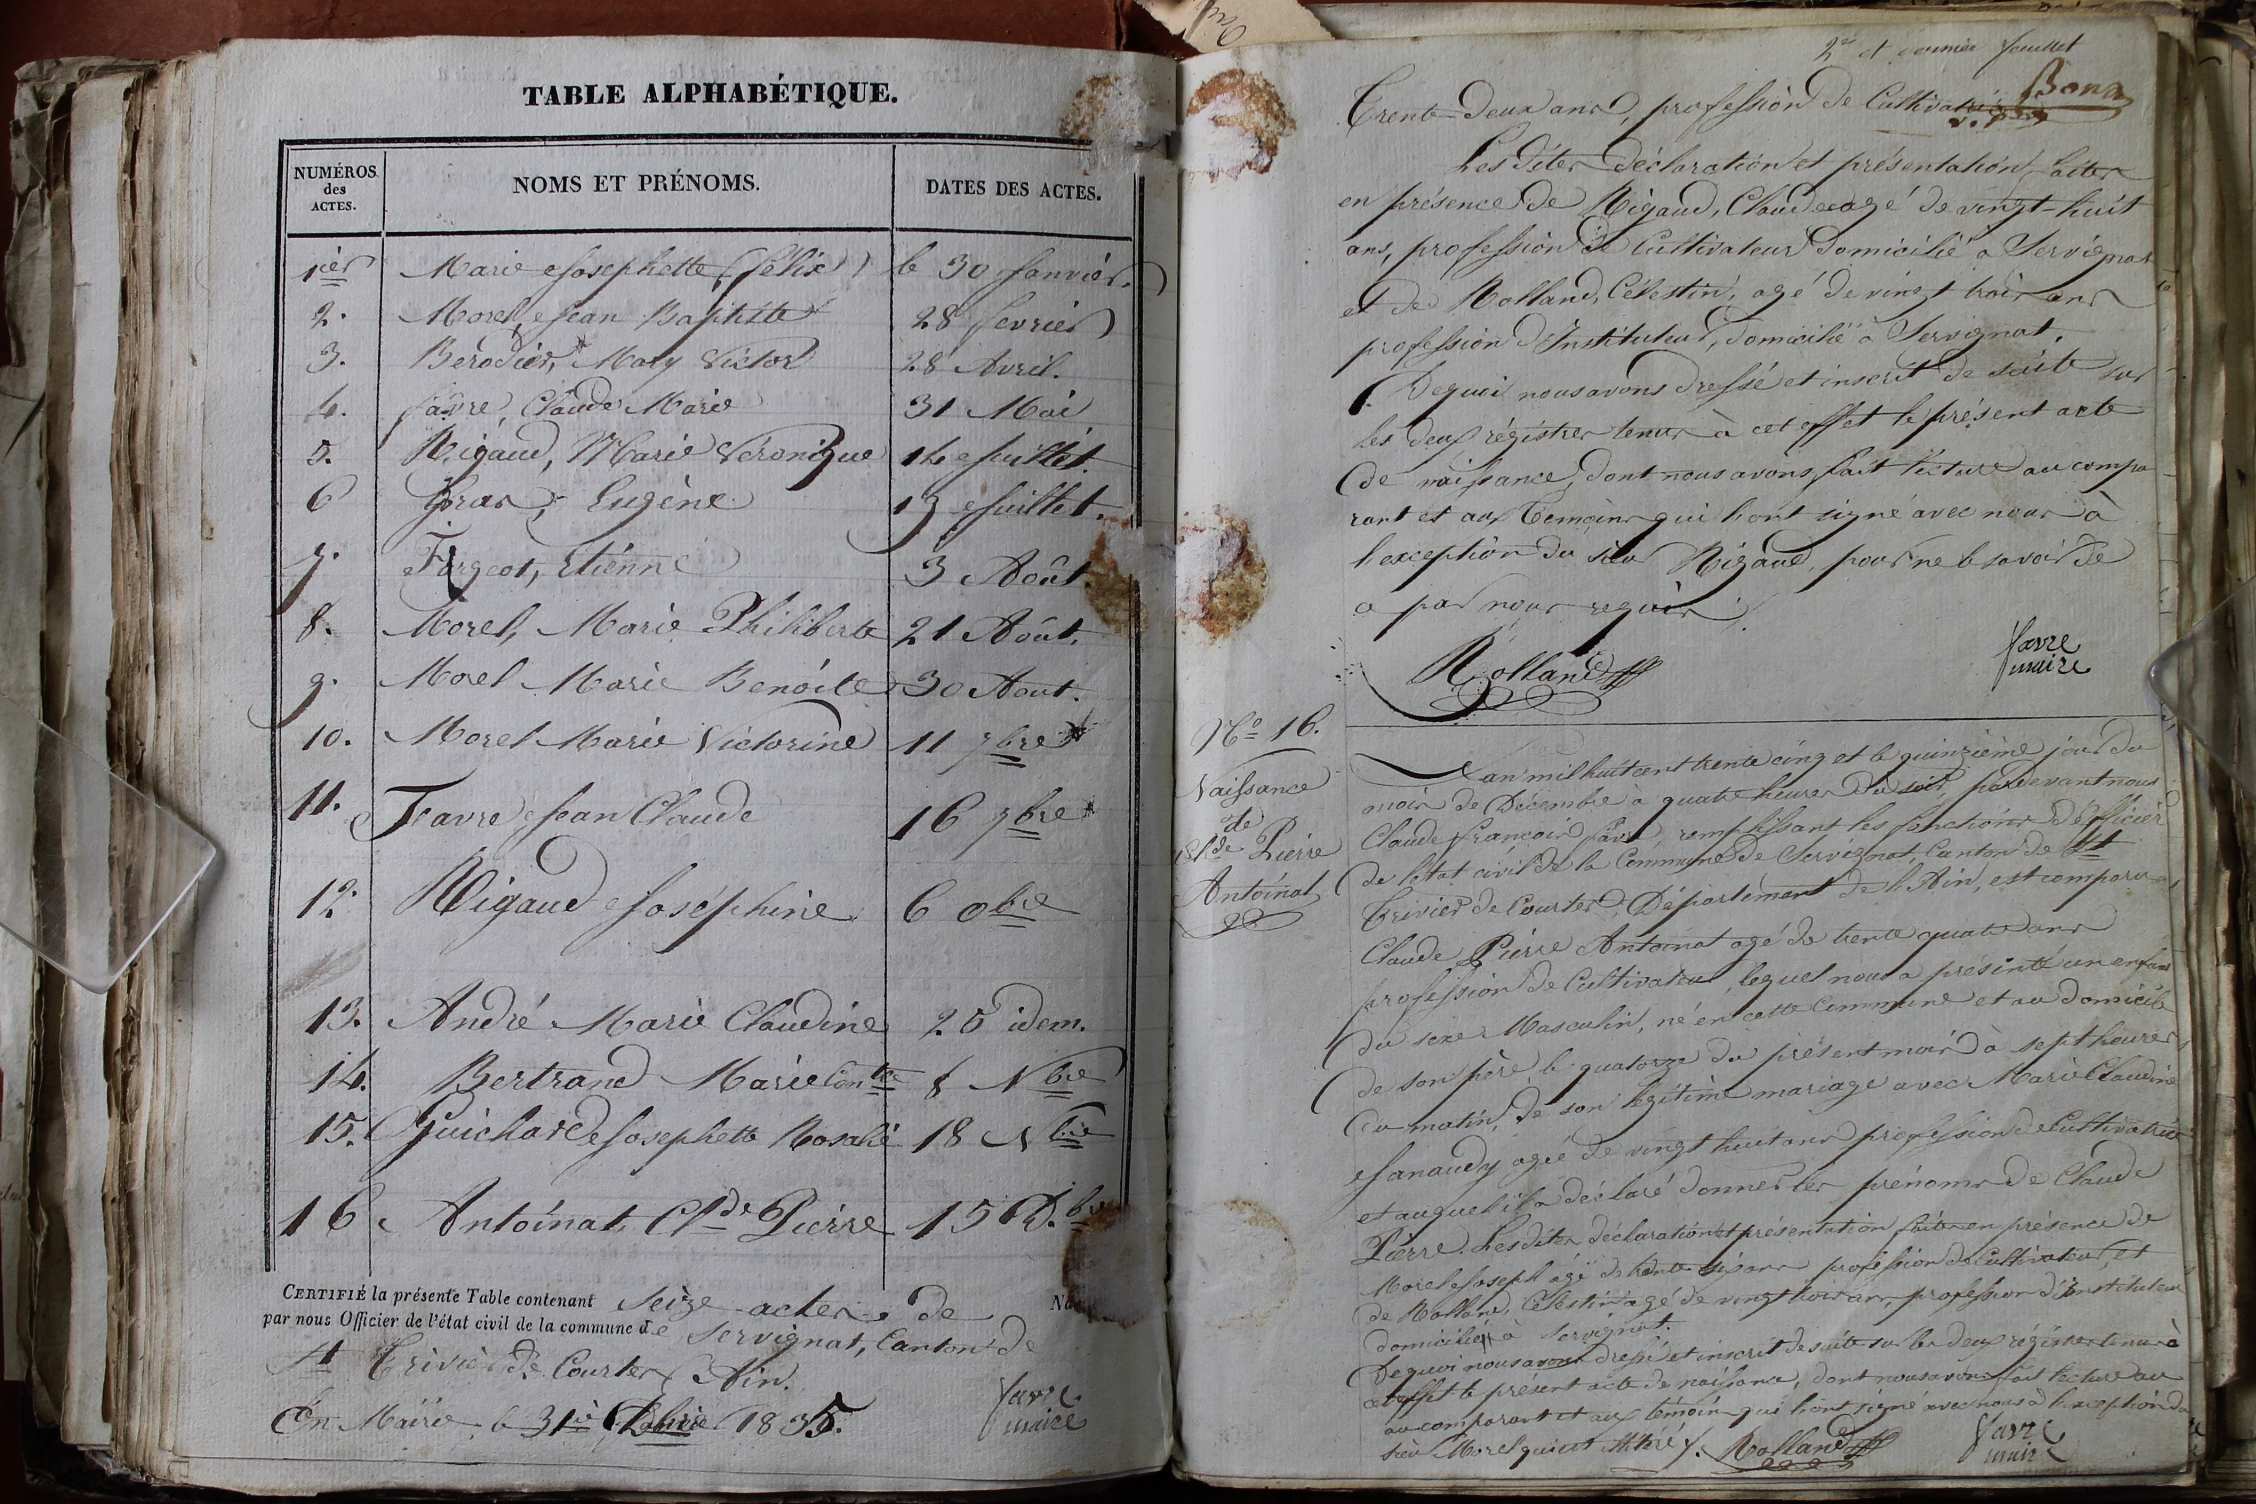 TABLE ALPHABÉTIQUE.
NUMÉROS des ACTES.
NOMS ET PRÉNOMS.
DATES DES ACTES.
1er Marie Josephette (félix) le 30 Janvier.
2. Morel, Jean Baptiste 28 fevrier
3. Berodier, Mary Victor 28 Avril.
4. favre, Claude Marie 31 Mai
5. Rigaud, Marie Véronique 14 Juillet.
6 Gras, Eugène 19 Juillet.
7. Forgeot, Etienne 3 Août.
8. Morel, Marie Philiberte 21 Août.
9. Morel Marie Benoite 30 Aout.
10. Morel Marie Victorine 11 7bre
11. Favre Jean Claude 16 7bre
12. Rigaud Joséphine 6 obre
13. André Marie Claudine 20 idem.
14. Bertrand Marie Contce 8 Nbre
15. Guichard Josephette Rosalie 18 Nbre
16 Antoinat, Clde Pierre 15 D.bre
CERTIFIÉ la présente Table contenant seize actes de
par nous Officier de l'état civil de la commune de Servignat, Canton de
St Trivier de Courtes Ain.
En Mairie, le 31 Dbre 1835.
favre
maire
2e et dernier feuillet
Trente-Deux ans, profession de Cultivatrice
Les dites déclaration et présentation, faites
en présence de Rigaud, Claude agé de vingt-huit
ans, profession de Cultivateur domicilié a Servignat
et de Rolland, Célestin, agé de vingt trois ans
profession d'Instituteur, domicilié à Servignat.
Dequoi nous avons dressé et inscrit de suite sur
les deux régistres tenus à cet effet le présent acte
de naissance, dont nous avons fait lecture au compa-
rant et aux temoins qui l'ont signé avec nous à
l'exception du sieur Rigaud, pour ne le savoir de
a par nous requis.
Rolland
favre
maire
No 16.
Naissance
de
Clde Pierre
Antoinat
L'an mil huit cent trente cinq et le quinzième jour du
mois de Décembre à quatre heures du soir, pardevant nous
Claude françois favre, remplissant les fonctions d'officier
de l'état civil de la Commune de Servignat, Canton de St
Trivier de Courtes, Département de l'Ain, est comparu
Claude Pierre Antoinat agé de trente quatre ans
profession de Cultivateur, lequel nous a présenté un enfant
du sexe Masculin, né en cette Commune et au domicile
de son père le quatorze du présent mois à sept heures
du matin, de son légitime mariage avec Marie Claudine
Janaudy agée de vingt huit ans profession de Cultivatrice
et auquel il a déclaré donner les prénoms de Claude
Pierre. Lesdites déclaration et présentation faites en présence de
Morel Joseph agé de trente six ans profession de Cultivateur, et
de Rolland, Célestin agé de vingt trois ans, profession d'Instituteur
domiciliés à Servignat.
Dequoi nous avons dressé et inscrit de suite sur les deux régistres tenus à
cet effet le présent acte de naissance, dont nous avons fait lecture au
comparant et aux témoins qui l'ont signé avec nous à l'exception du
sieur Morel
Rolland
favre
maire